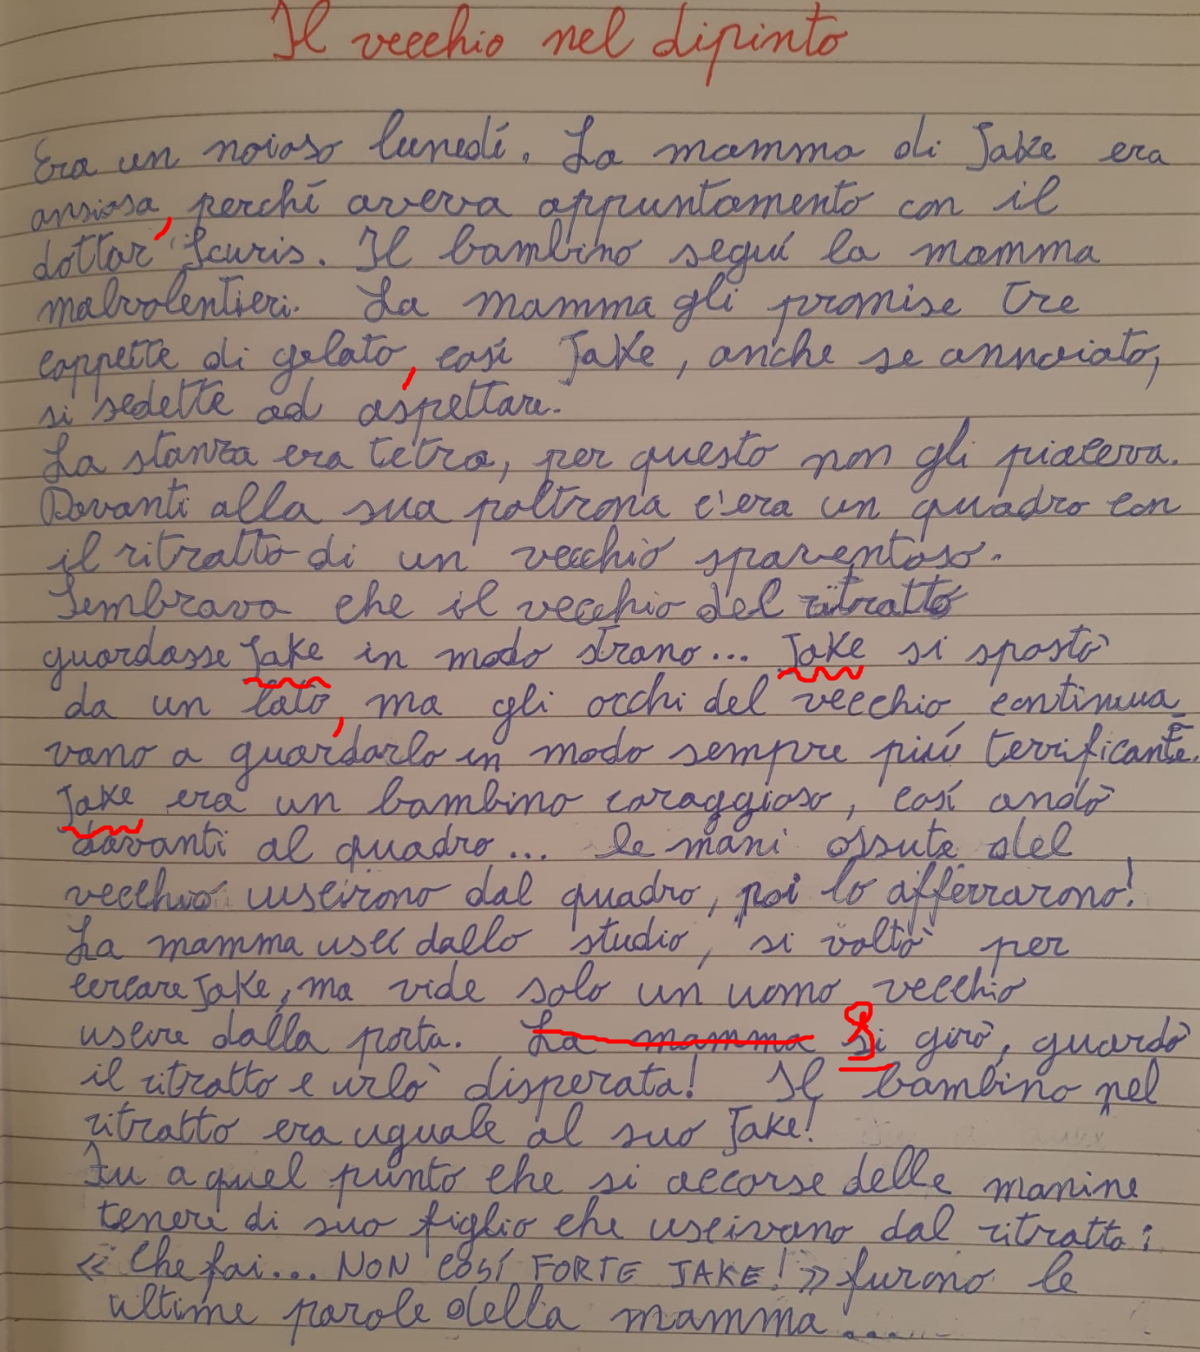 Il vecchio nel dipinto
Era un noioso lunedí. La mamma di Jake era
ansiosa, perché aveva appuntamento con il
dottor Scuris. Il bambino seguí la mamma
malvolentieri. La mamma gli promise tre
coppette di gelato, cosí Jake, anche se annoiato,
si sedette ad aspettare.
La stanza era tetra, per questo non gli piaceva.
Davanti alla sua poltrona c'era un quadro con
il ritratto di un vecchio spaventoso.
Sembrava che il vecchio del ritratto
guardasse Jake in modo strano... Jake si spostò
da un lato, ma gli occhi del vecchio continua
vano a guardarlo in modo sempre piú terrificante.
Jake era un bambino coraggioso, cosí andò
davanti al quadro... le mani ossute del
vecchio uscirono dal quadro, poi lo afferrarono!
La mamma uscí dallo studio, si voltò per
cercare Jake, ma vide solo un uomo vecchio
uscire dalla porta. La mamma Si girò, guardò
il ritratto e urlò disperata! Il bambino nel
ritratto era uguale al suo Jake!
Fu a quel punto che si accorse delle manine
tenere di suo figlio che uscivano dal ritratto:
« Che fai... NON COSÍ FORTE JAKE! » furono le
ultime parole della mamma ........